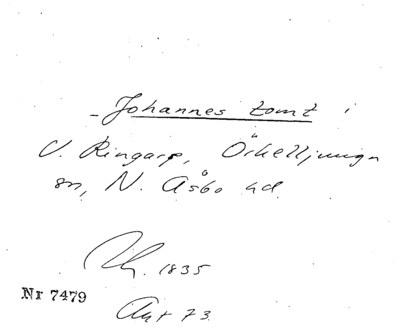 Johannes tomt i
V. Ringarp, Örkelljunga
sn, N. Åsbo hd.
1835
Nr 7479
73